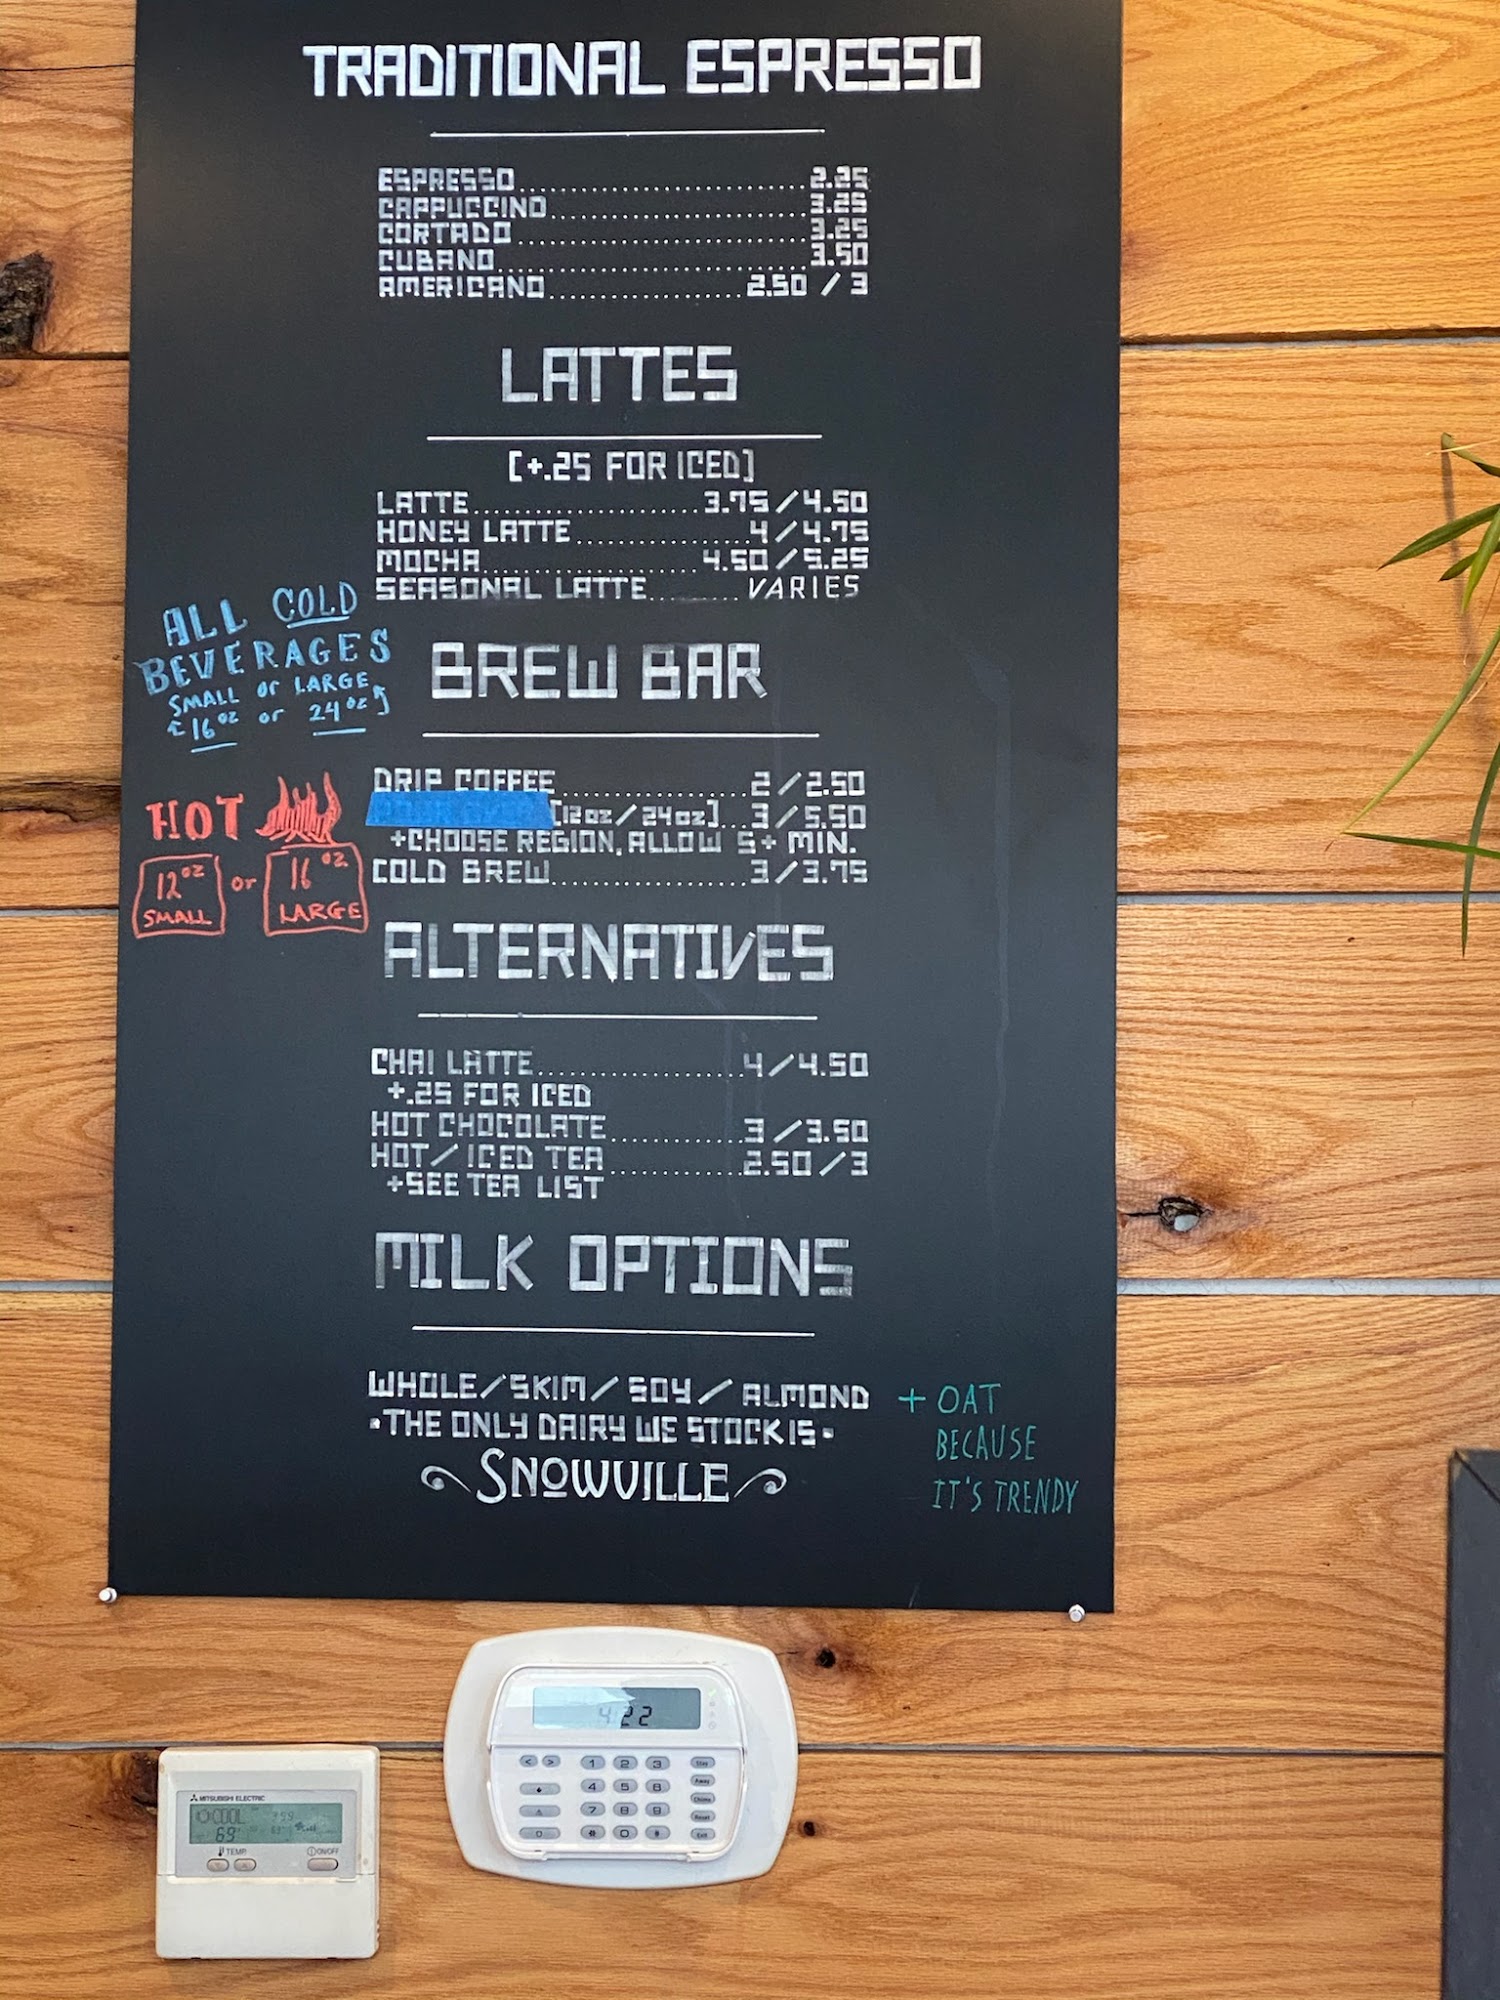 TRADITIONAL ESPRESSO
ESPRESSO..............................2.25
CAPPUCCINO...........................3.25
CORTADO..............................3.25
CUBANO...............................3.50
AMERICANO....................2.50 / 3
LATTES
[+.25 FOR ICED]
LATTE.......................3.75/4.50
HONEY LATTE.................4/4.75
MOCHA.......................4.50/5.25
SEASONAL LATTE......... VARIES
ALL COLD
BEVERAGES
SMALL or LARGE
[16oz or 24oz]
BREW BAR
DRIP COFFEE....................2/2.50
[12oz/24oz]...3/5.50
+CHOOSE REGION, ALLOW 5+ MIN.
COLD BREW....................3/3.75
HOT
12oz SMALL or 16oz LARGE
ALTERNATIVES
CHAI LATTE.....................4/4.50
+.25 FOR ICED
HOT CHOCOLATE..............3/3.50
HOT/ICED TEA..............2.50/3
+SEE TEA LIST
MILK OPTIONS
WHOLE/SKIM/SOY/ALMOND
•THE ONLY DAIRY WE STOCK IS•
SNOWVILLE
+ OAT
BECAUSE
IT'S TRENDY
4:22
< > 1 2 3 Stay
4 5 6 Away
7 8 9 Chime
* 0 # Reset
Exit
MITSUBISHI ELECTRIC
COOL
69
TEMP. ON/OFF